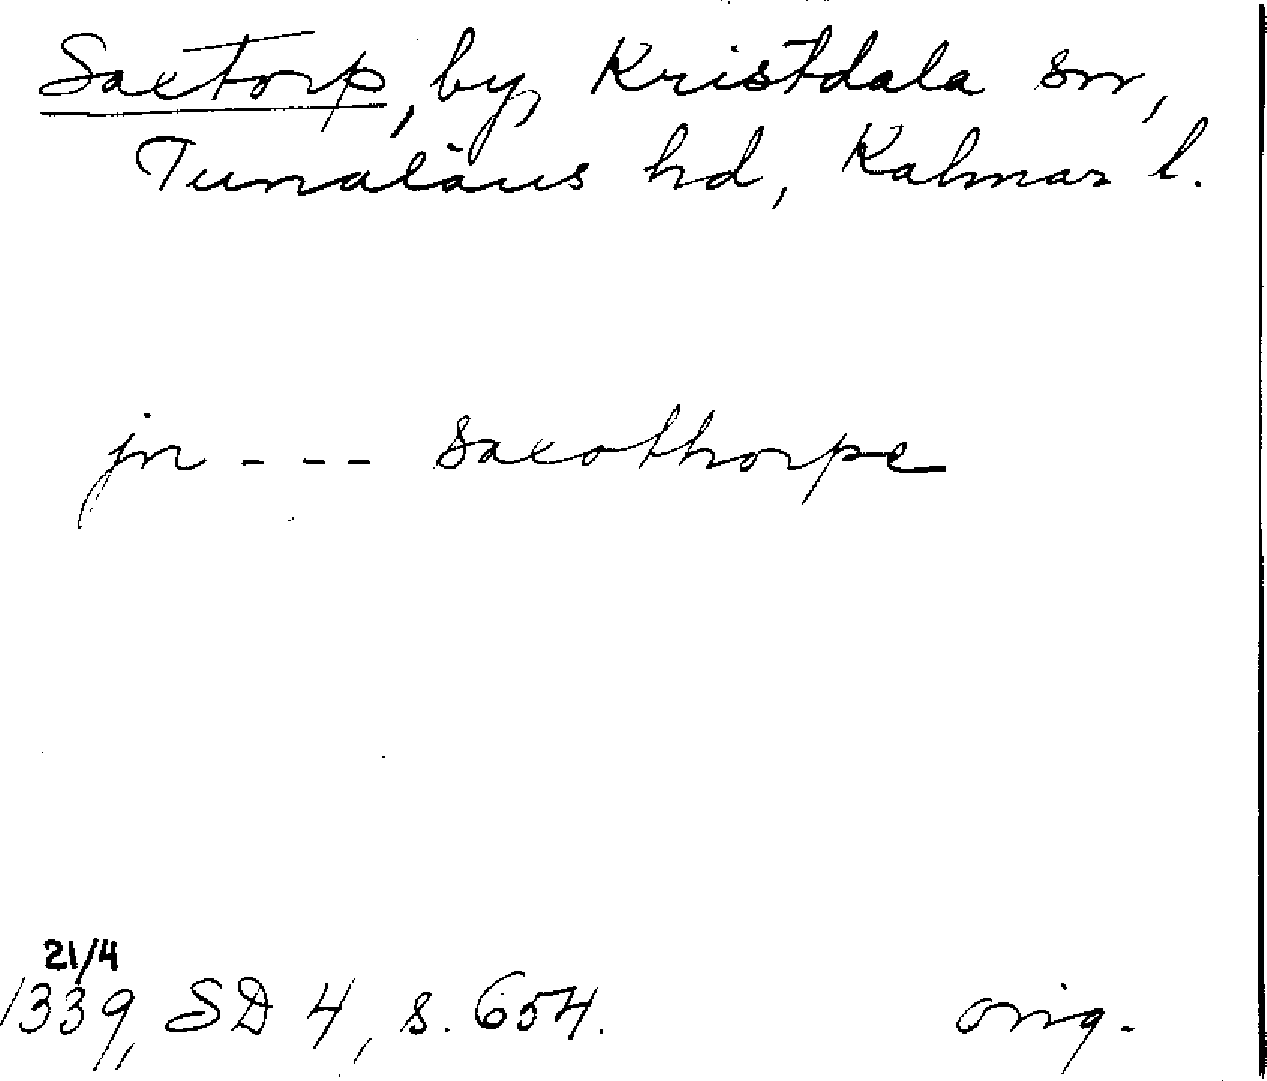 Saxtorp, by, Kristdala sn,
Tunaläns hd, Kalmar l.
jn --- Saxothorpe
21/4
1339, SD 4, s. 654. orig.